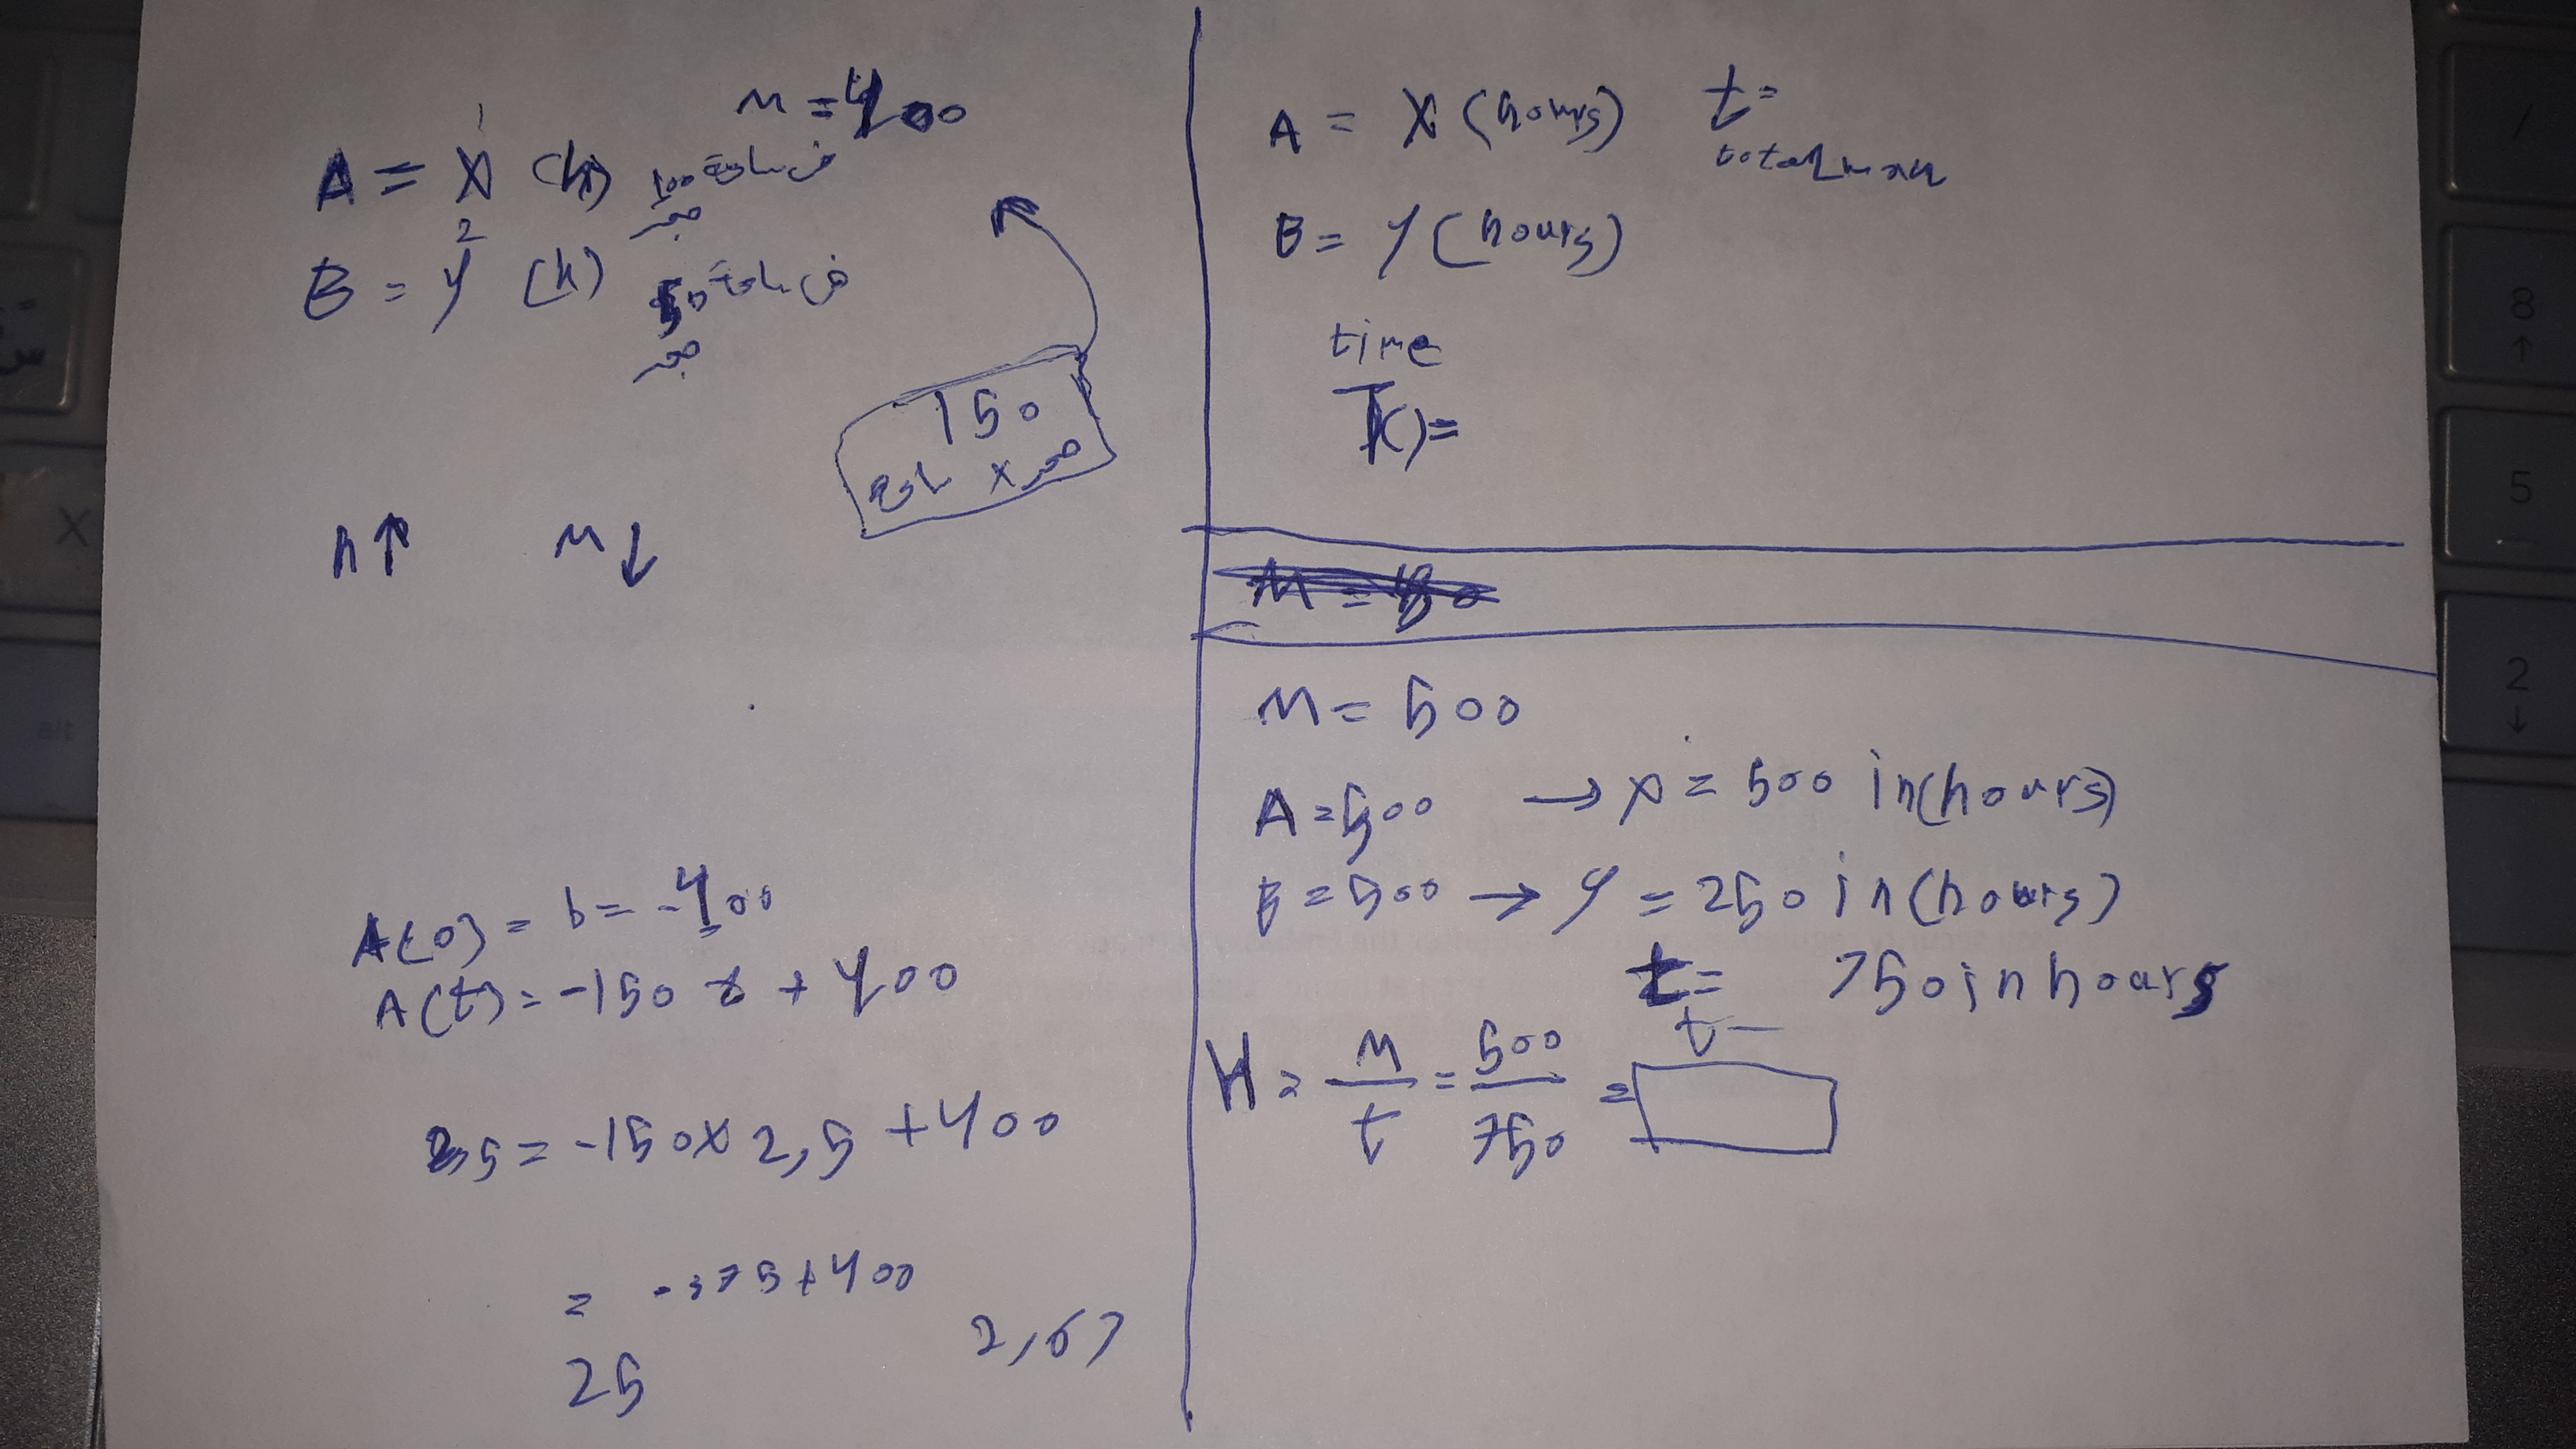 M = 400
A = X (h) 100 في ساعة
متر
B = y (h) 50 في ساعة
متر
150
متر x ساعة
h↑ M↓
A(0) = b = -400
A(t) = -150 t + 400
25 = -150 x 2,5 + 400
= -375 + 400
25
2,67
A = X (hours) t =
total man
B = y (hours)
time
T() =
M = 500
A = 500 → x = 500 in (hours)
B = 500 → y = 250 in (hours)
t = 750 in hours
t —
H = M/t = 500/750 =